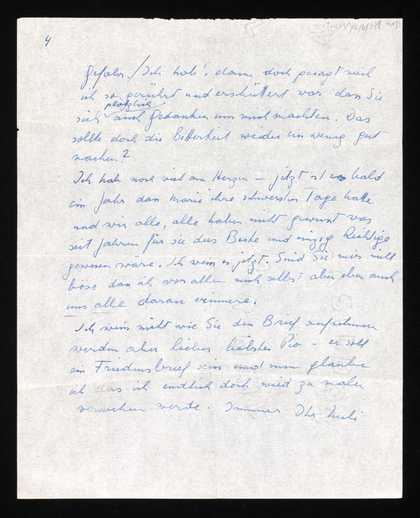 4
Gefahr. / Ich hab's dann doch gesagt weil
ich so gerührt und erschüttert war dass Sie
plötzlich
sich auch Gedanken um mich machten. Das
sollte doch die Bitterkeit wieder ein wenig gut
machen?
Ich hab noch viel am Herzen – jetzt ist es bald
ein Jahr dass Marie ihre schwersten Tage hatte
und wir alle, alle haben nicht gewusst was
seit Jahren für sie das Beste und einzig Richtige
gewesen wäre. Ich weiss es jetzt. Sind Sie mir nicht
böse dass ich vor allem mich selbst aber eben auch
uns alle daran erinnere.
Ich weiss nicht wie Sie den Brief aufnehmen
werden aber lieber, liebster – er soll
ein Friedensbrief sein und nun glaube
ich das ich endlich doch zu
werde. Immer Ihr